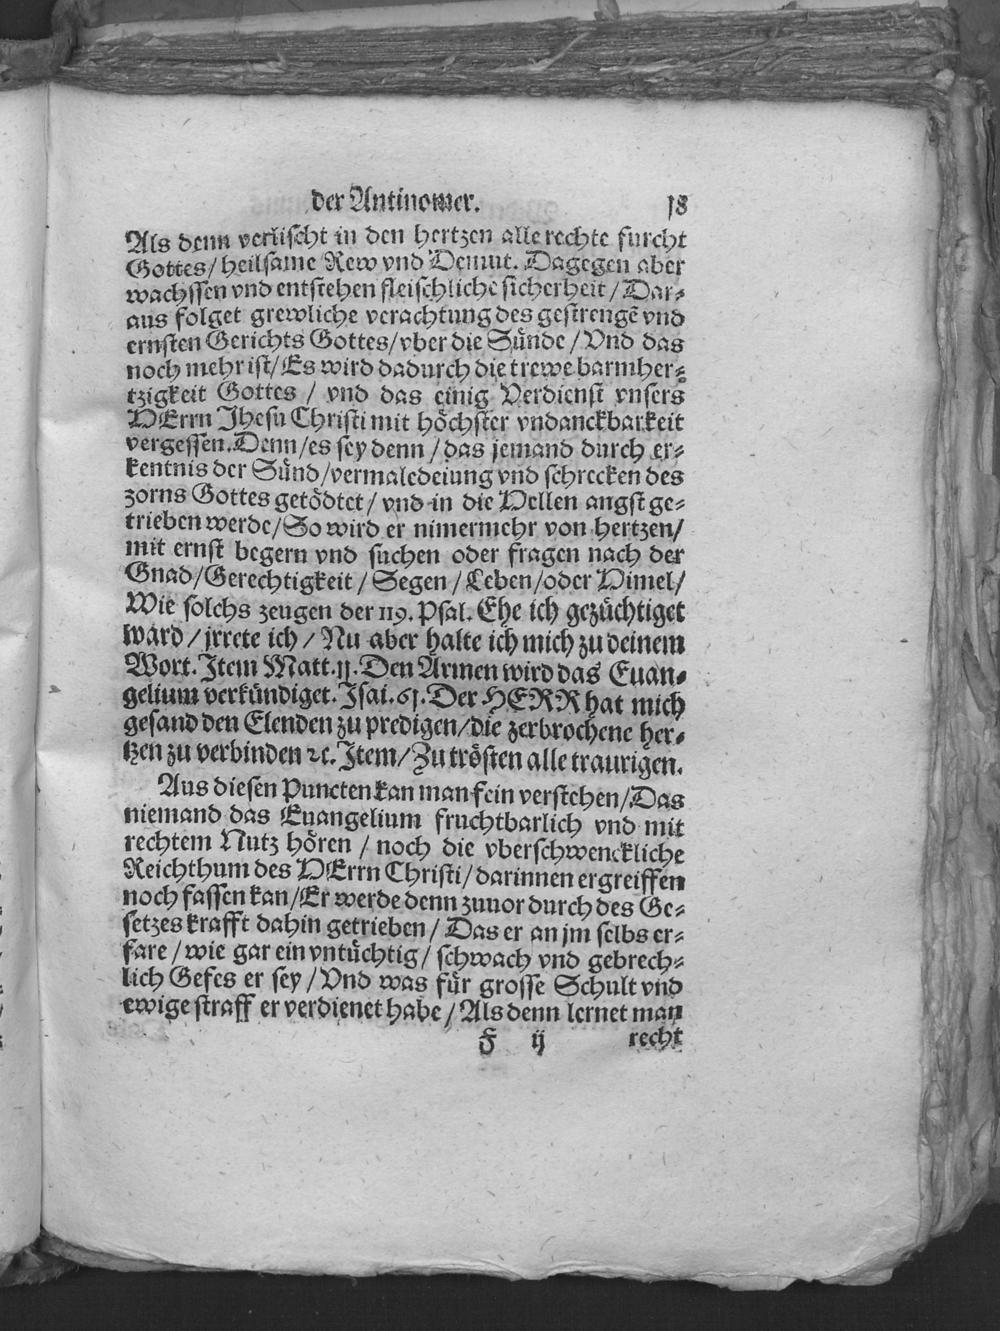 der Antinomer. 18
Als denn verlischt in den hertzen alle rechte furcht
Gottes/ heilsame Rew vnd Demut. Dagegen aber
wachssen vnd entstehen fleischliche sicherheit/ Dar-
aus folget grewliche verachtung des gestrengẽ vnd
ernsten Gerichts Gottes/ vber die Sünde/ Vnd das
noch mehr ist/ Es wird dadurch die trewe barmher-
tzigkeit Gottes/ vnd das einig Verdienst vnsers
HErrn Jhesu Christi mit höchster vndanckbarkeit
vergessen. Denn/ es sey denn/ das jemand durch er-
kentnis der Sünd/ vermaledeiung vnd schrecken des
zorns Gottes getödtet/ vnd in die Hellen angst ge-
trieben werde/ So wird er nimermehr von hertzen/
mit ernst begern vnd suchen oder fragen nach der
Gnad/ Gerechtigkeit/ Segen/ Leben/ oder Himel/
Wie solchs zeugen der 119. Psal. Ehe ich gezüchtiget
ward/ jrrete ich/ Nu aber halte ich mich zu deinem
Wort. Item Matt. 11. Den Armen wird das Euan-
gelium verkündiget. Isai. 61. Der HERR hat mich
gesand den Elenden zu predigen/ die zerbrochene her-
tzen zu verbinden ꝛc. Item/ Zu trösten alle traurigen.
Aus diesen Puncten kan man fein verstehen/ Das
niemand das Euangelium fruchtbarlich vnd mit
rechtem Nutz hören/ noch die vberschwenckliche
Reichthum des HErrn Christi/ darinnen ergreiffen
noch fassen kan/ Er werde denn zuuor durch des Ge-
setzes krafft dahin getrieben/ Das er an jm selbs er-
fare/ wie gar ein vntüchtig/ schwach vnd gebrech-
lich Gefes er sey/ Vnd was für grosse Schult vnd
ewige straff er verdienet habe/ Als denn lernet man
F ij recht